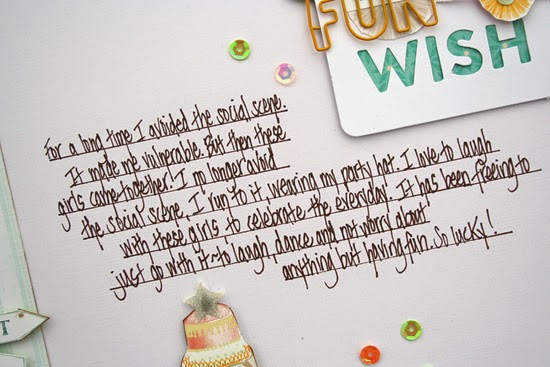 FUN
WISH
For a long time I avoided the social scene.
It made me vulnerable. But then these
girls came together. I no longer avoid
the social scene, I run to it wearing my party hat. I love to laugh
with these girls to celebrate the everyday. It has been freeing to
just go with it~to laugh, dance and not worry about
anything but having fun. So lucky!
T